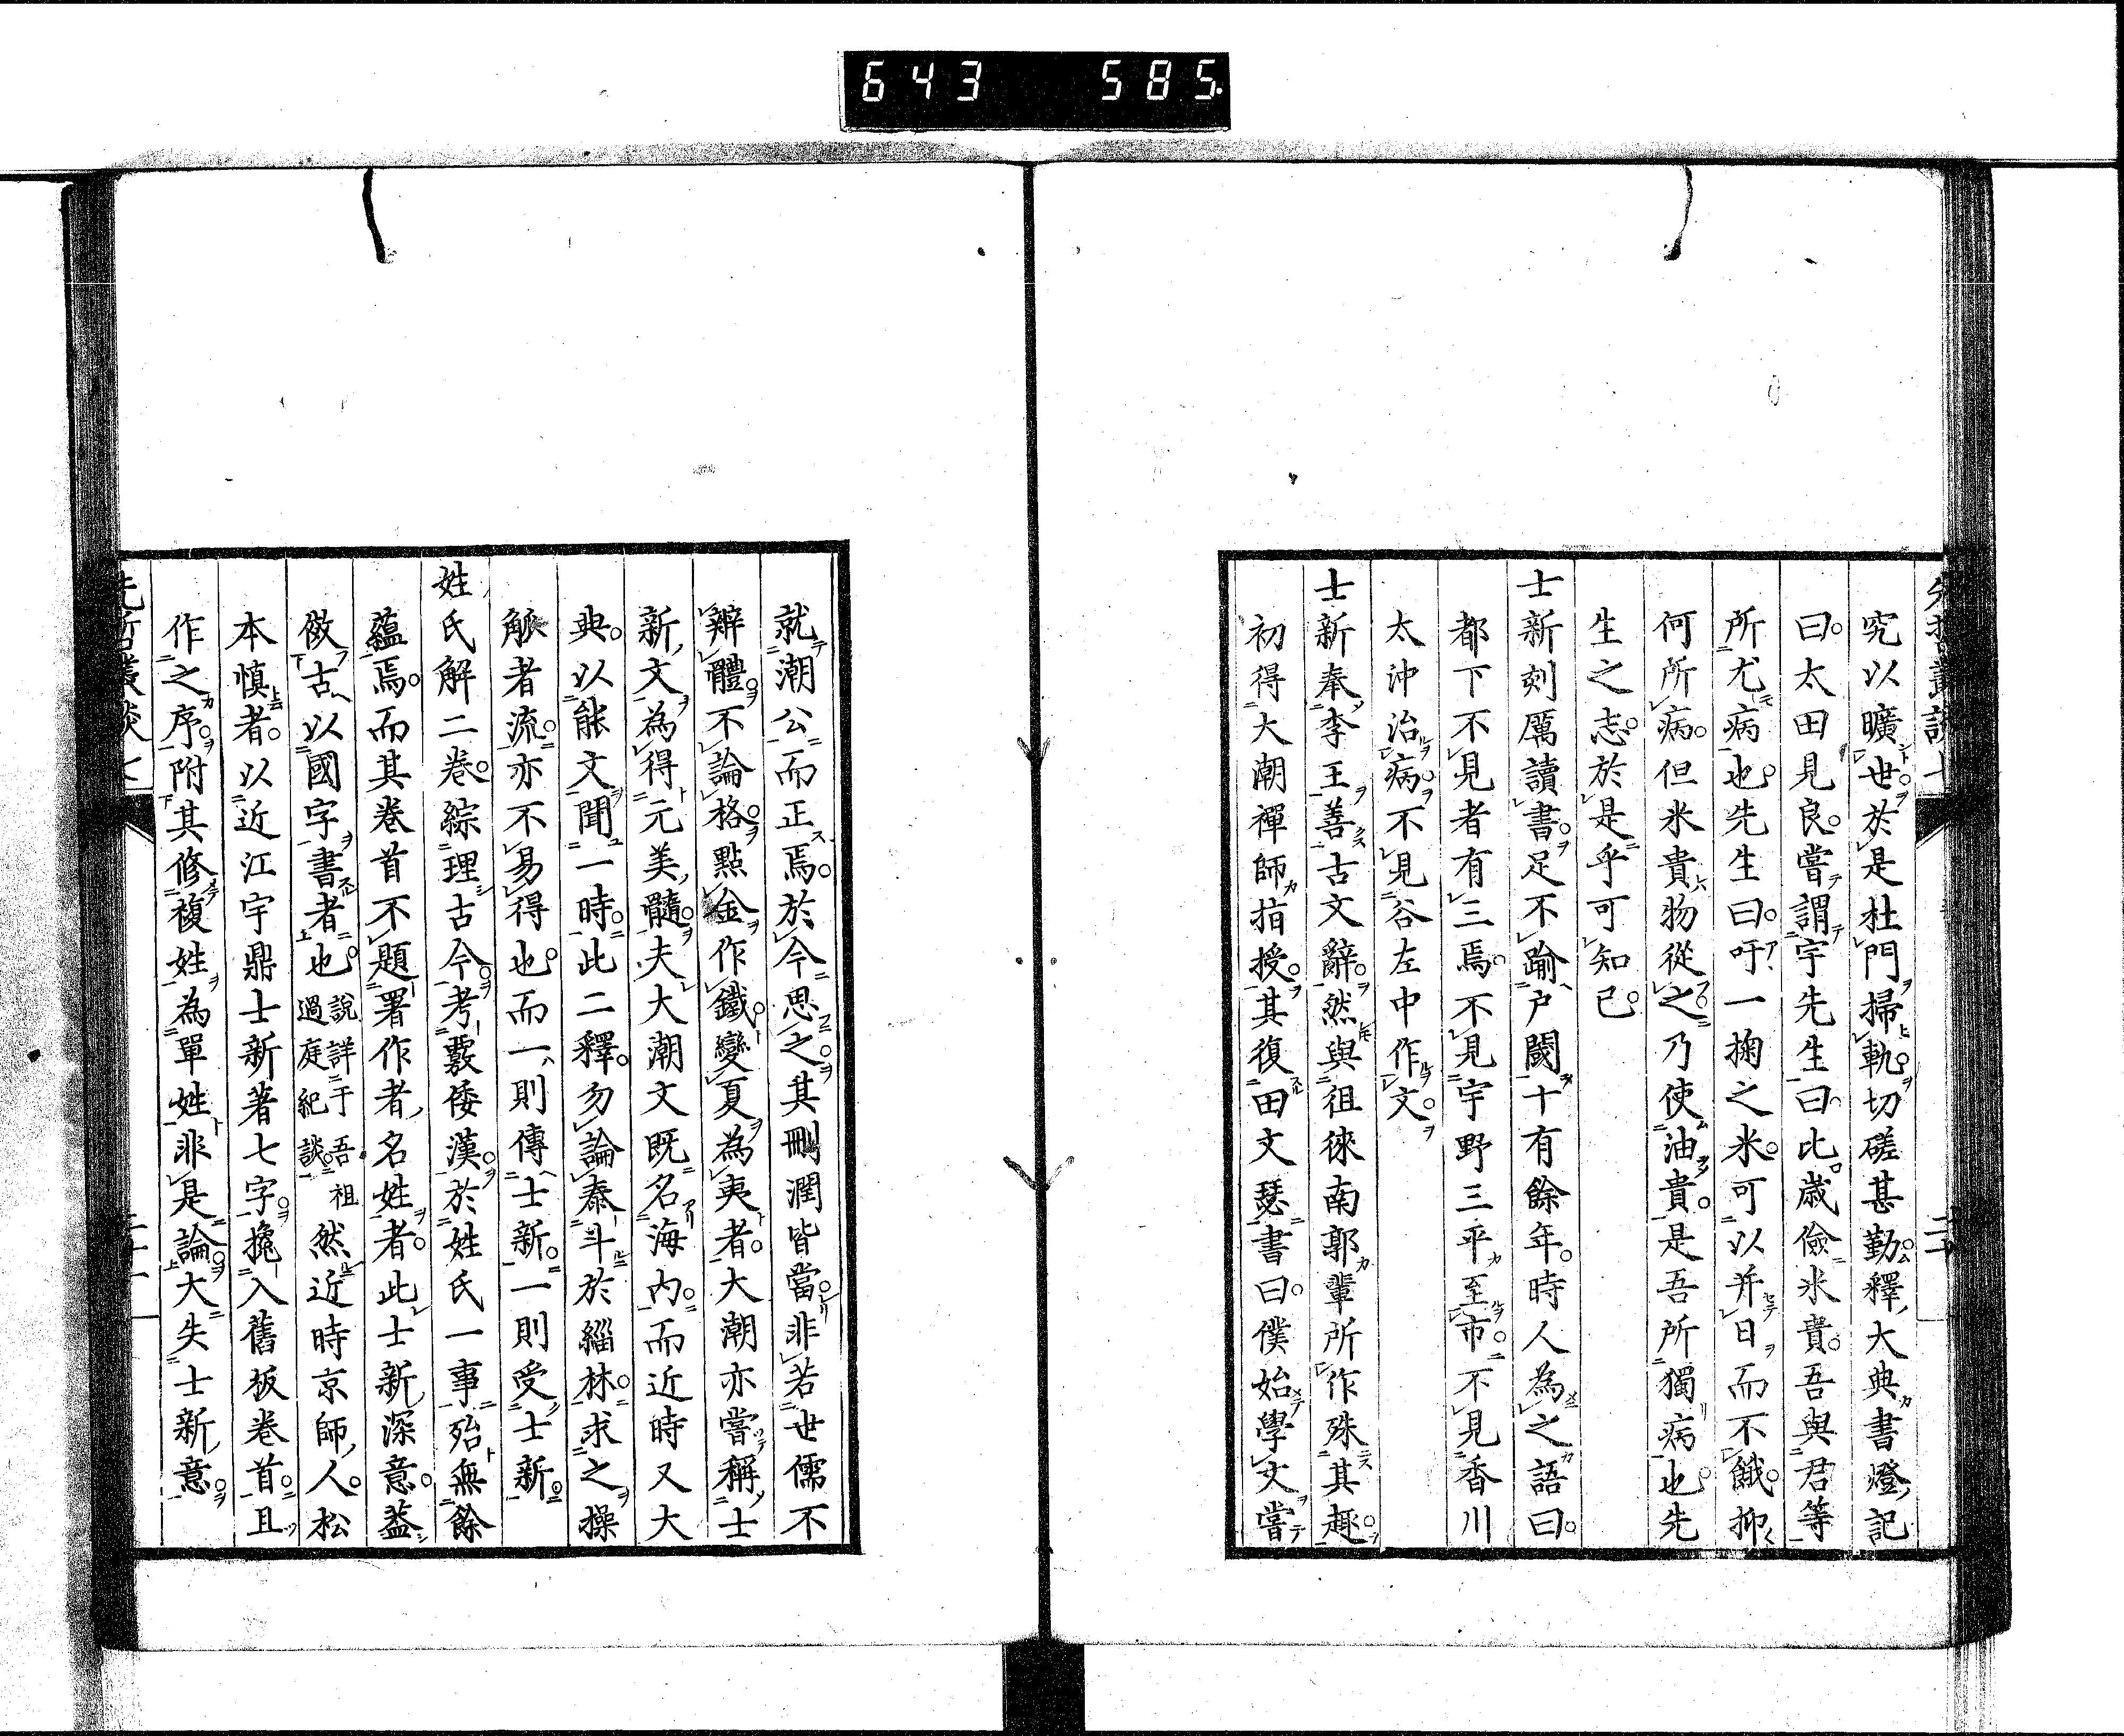 643 585.
究以曠世於是杜門掃軌切磋甚勤釋大典書燈記
曰太田見良嘗謂宇先生曰比歲儉米貴吾與君等
所尤病也先生曰吁一掬之米可以并日而不餓抑
何所病但米貴物從之乃使油貴是吾所獨病也先
生之志於是乎可知已
士新刻厲讀書足不踰戶閾十有餘年時人為之語曰
都下不見者有三焉不見宇野三平至市不見香川
太沖治病不見谷左中作文
士新奉李王善古文辭然與徂徠南郭輩所作殊其趣
初得大潮禪師指授其復田文瑟書曰僕始學文嘗
就潮公而正焉於今思之其刪潤皆當非若世儒不
辨體不論格點金作鐵變夏為夷者大潮亦嘗稱士
新文為得元美髓夫大潮文既名海內而近時又大
典以能文聞一時此二釋勿論泰斗於緇林求之操
觚者流亦不易得也而一則傳士新一則受士新
姓氏解二卷綜理古今考覈倭漢於姓氏一事殆無餘
蘊焉而其卷首不題署作者名姓者此士新深意蓋
倣古以國字書者也說詳于吾祖過庭紀談然近時京師人松
本慎者以近江宇鼎士新著七字攙入舊板卷首且
作之序附其修複姓為單姓非是論大失士新意